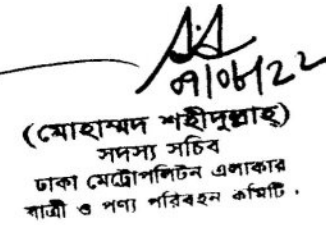 ০৭/০৬/২২
(মোহাম্মদ শহীদুল্লাহ)
সদস্য সচিব
ঢাকা মেট্রোপলিটন এলাকার
যাত্রী ও পণ্য পরিবহন কমিটি।